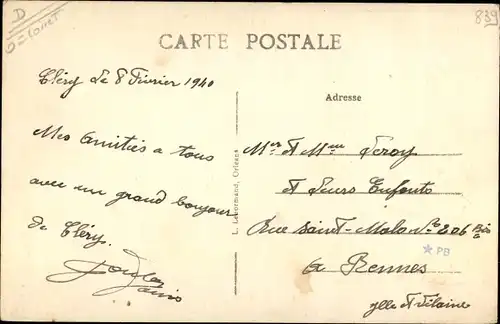 D
Loiret
839
CARTE POSTALE
Cléry le 8 Février 1940
Adresse
Mes Amitiés a tous
avec un grand bonjour
de Cléry.
L. Lenormand, Orléans
Mr et Mme Leroy
et Leurs Enfants
Rue Saint-Malo No 206 Bis
a Rennes
Ille et Vilaine
PB